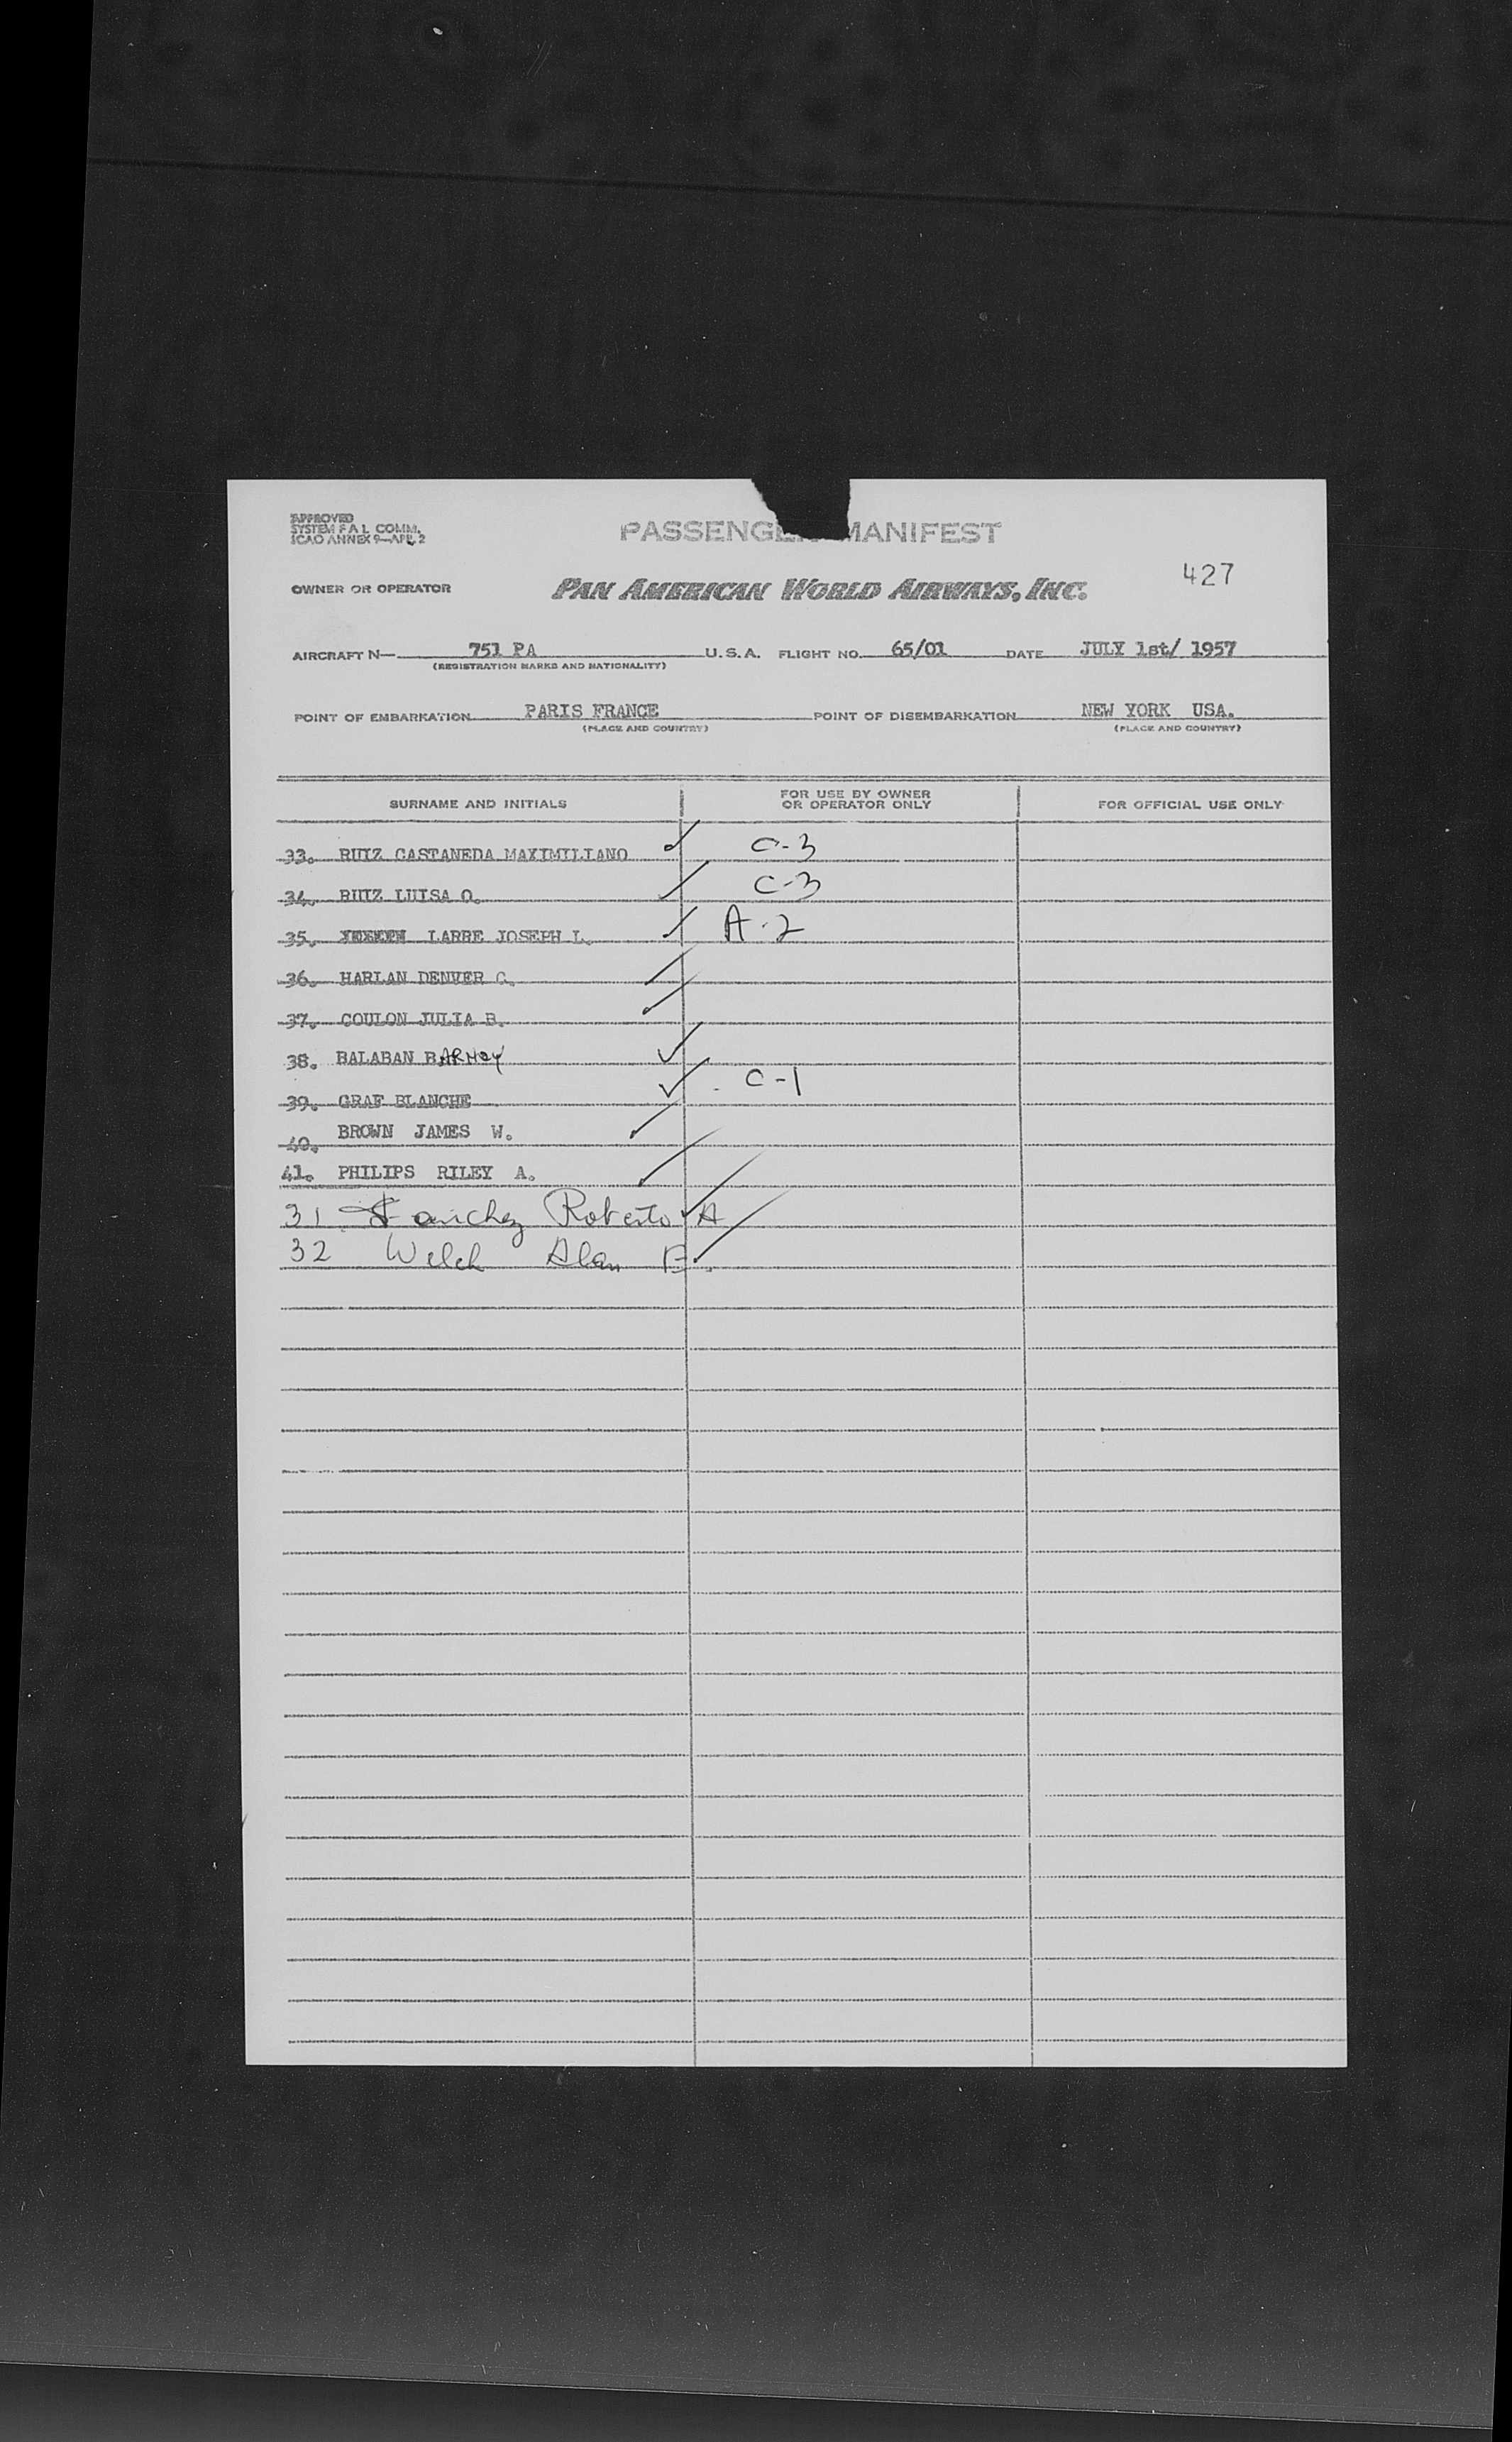 APPROVED
SYSTEM F A L COMM.
ICAO ANNEX 9—APP. 2
PASSENGER MANIFEST
427
OWNER OR OPERATOR PAN AMERICAN WORLD AIRWAYS, INC.
AIRCRAFT N— 751 PA U.S.A. FLIGHT NO. 65/01 DATE JULY 1st/ 1957
(REGISTRATION MARKS AND NATIONALITY)
POINT OF EMBARKATION PARIS FRANCE POINT OF DISEMBARKATION NEW YORK USA.
(PLACE AND COUNTRY) (PLACE AND COUNTRY)
SURNAME AND INITIALS FOR USE BY OWNER OR OPERATOR ONLY FOR OFFICIAL USE ONLY
33. RUIZ CASTANEDA MAXIMILIANO C-3
34. RUIZ LUISA O. C-3
35. LARRE JOSEPH L. A-2
36. HARLAN DENVER C.
37. COULON JULIA B.
38. BALABAN BARNEY
39. GRAF BLANCHE C-1
40. BROWN JAMES W.
41. PHILIPS RILEY A.
31 Sanchez Roberto A
32 Welch Alan E.